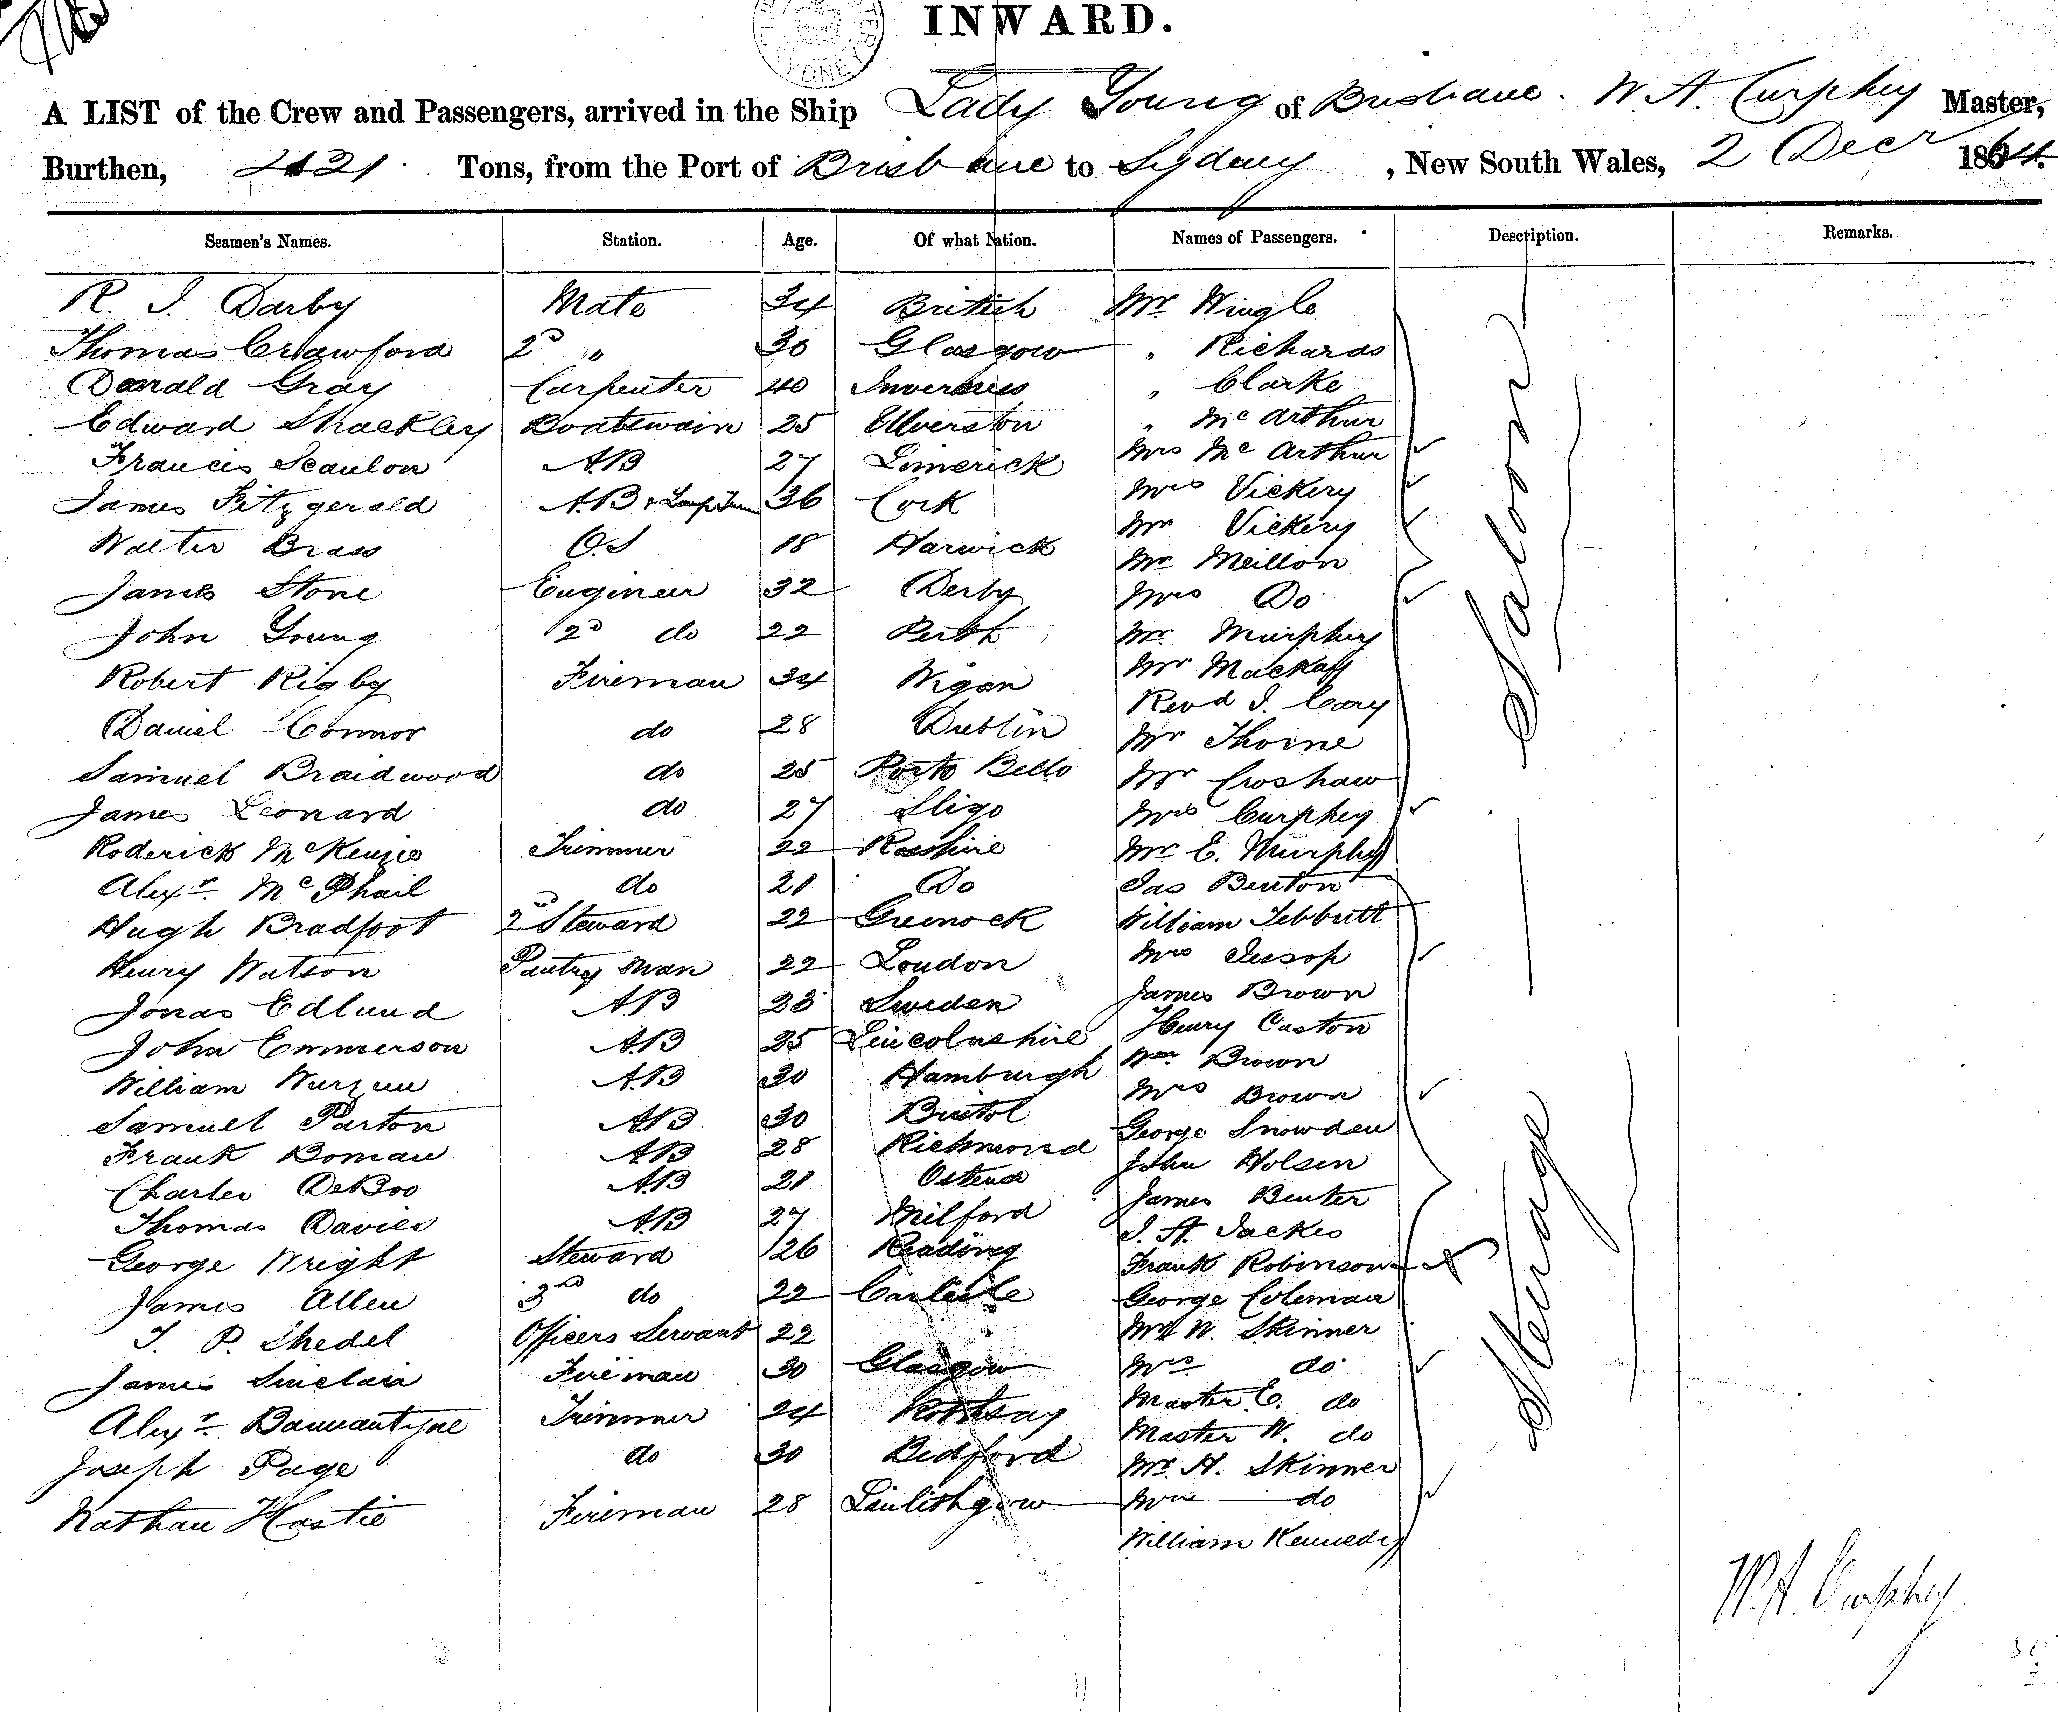 INWARD.
A LIST of the Crew and Passengers, arrived in the Ship Lady Young of Brisbane. W. A. Curphey Master,
Burthen, 421 Tons, from the Port of Brisbane to Sydney, New South Wales, 2 Decr 1864.
Seamen's Names. Station. Age. Of what Nation. Names of Passengers. Description. Remarks.
R. J. Darby Mate 34 British Mr Wingle
Thomas Crawford 2D " 30 Glasgow " Richards
Donald Gray Carpenter 40 Inverness " Clarke
Edward Shackley Boatswain 25 Ulverston " Mc Arthur
Francis Scanlon AB 27 Limerick Mrs Mc Arthur
James Fitzgerald AB & 36 Cork Mrs Vickery
Walter Brass O.S 18 Harwick Mr Vickery
Mr Meillon
James Stone Engineer 32 Derby Mrs Do
John Young 2D do 22 Perth Mr Murphey
Robert Rigby Fireman 34 Wigan Mr Mackay
Revd J. Cary
Daniel Connor do 28 Dublin Mr Thorne
Samuel Braidwood do 25 Porto Bello Mr Croshaw
James Leonard do 27 Sligo Mrs Curphey
Roderick McKenzie Trimmer 22 Rosshire Mr E. Murphy
Saloon
Alexr. McPhail do 21 Do Jas Benton
Hugh Bradfoot 2D Steward 22 Greenock William Tebbutt
Henry Watson Pantry Man 22 London Mrs Jessop
Jonas Edlund AB 23 Sweden James Brown
John Emmerson AB 25 Lincolnshire Henry Caston
William AB 30 Hamburgh Wm Brown
Mrs Brown
Samuel Parton AB 30 Bristol George Snowden
Frank Boman AB 28 Richmond John Holsen
Charles DeBoo AB 21 Ostend James Benter
Thomas Davies AB 27 Milford J. A. Jackes
George Wright Steward 26 Reading Frank Robinson
James Allen 3rd do 22 Carlisle George Coleman
J. P. Shedel Officers Servant 22 Mr W. Skinner
James Sinclair Fireman 30 Glasgow Mrs do
Alexr. Bannantyne Trimmer 24 Rothsay Master E. do
Master W. do
Joseph Page do 30 Bedford Mr H. Skinner
Nathan Hastie Fireman 28 Linlithgow Mrs do
William Kennedy
Sterage
W. A. Curphey